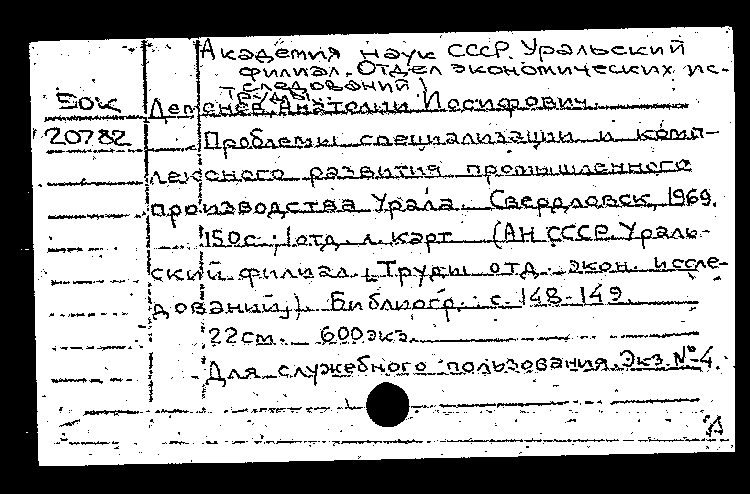 Академия наук СССР. Уральский
филиал. Отдел экономических ис-
следований
Труды
Бок Деменев, Анатолий Иосифович.
20782 Проблемы специализации и комп-
лексного развития промышленного
производства Урала. Свердловск, 1969.
150с.; 1отд. л. карт (АН СССР. Ураль-
ский филиал. Труды отд. экон. иссле-
дований,). Библиогр.: с. 148-149.
22см. 600экз.
Для служебного пользования. Экз. №4.